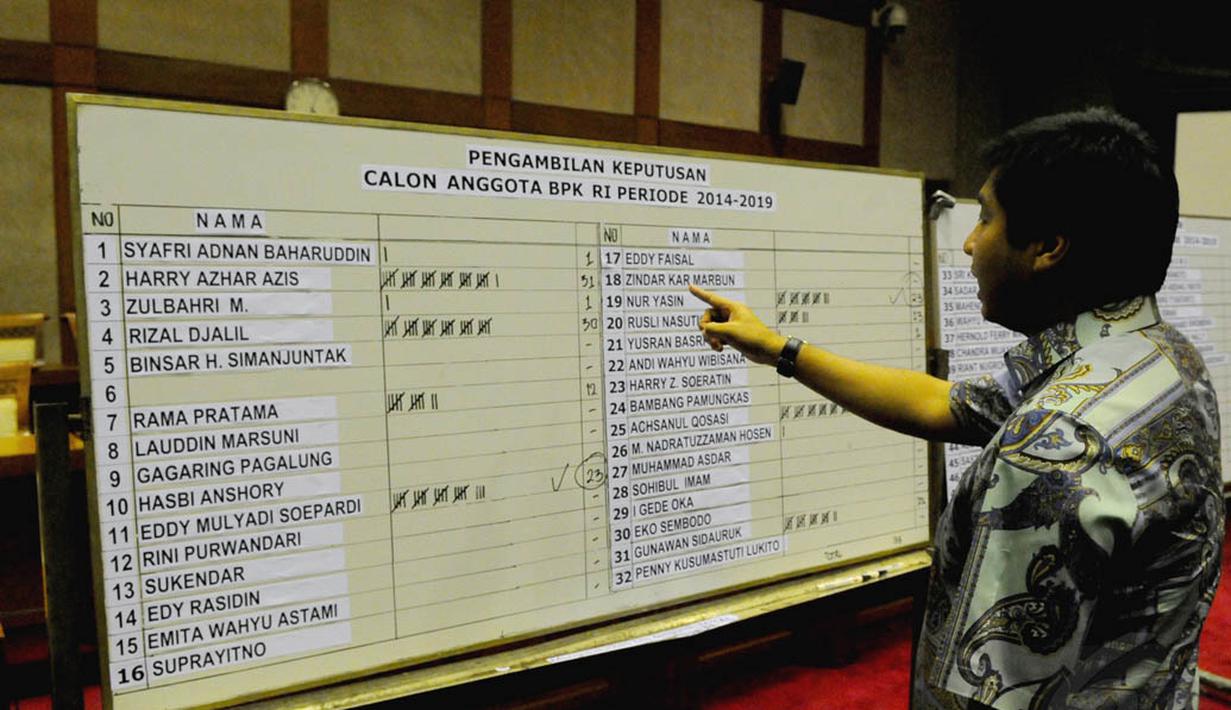 PENGAMBILAN KEPUTUSAN
CALON ANGGOTA BPK RI PERIODE 2014-2019
NO NAMA
1 SYAFRI ADNAN BAHARUDDIN 1
2 HARRY AZHAR AZIS 31
3 ZULBAHRI M. 1
4 RIZAL DJALIL 30
5 BINSAR H. SIMANJUNTAK
6 12
7 RAMA PRATAMA -
8 LAUDDIN MARSUNI -
9 GAGARING PAGALUNG 23
10 HASBI ANSHORY -
11 EDDY MULYADI SOEPARDI -
12 RINI PURWANDARI -
13 SUKENDAR -
14 EDY RASIDIN
15 EMITA WAHYU ASTAMI
16 SUPRAYITNO
NO NAMA
17 EDDY FAISAL -
18 ZINDAR KAR MARBUN
19 NUR YASIN 23
20 RUSLI NASUTI 13
21 YUSRAN BASR
22 ANDI WAHYU WIBISANA
23 HARRY Z. SOERATIN
24 BAMBANG PAMUNGKAS
25 ACHSANUL QOSASI
26 M. NADRATUZZAMAN HOSEN
27 MUHAMMAD ASDAR
28 SOHIBUL IMAM
29 I GEDE OKA
30 EKO SEMBODO
31 GUNAWAN SIDAURUK
32 PENNY KUSUMASTUTI LUKITO
33 SRI
34
35
36
37 HERNOLD FERRY
38 CHANDRA
RIANT NUGRO
45
46